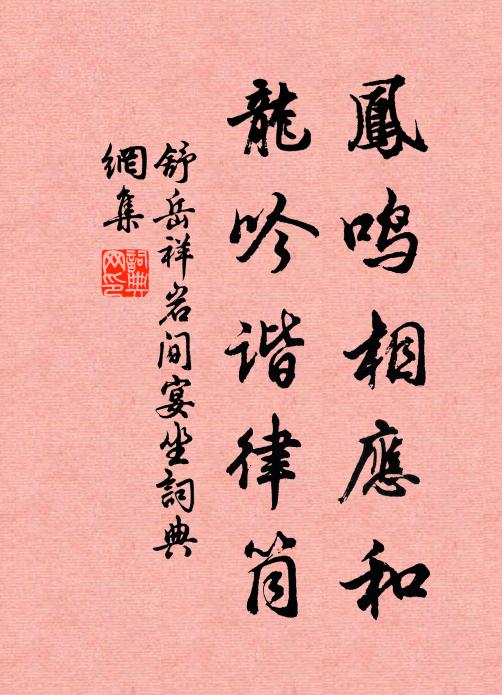 鳳鸣相應和
龍吟谐律筒
舒岳祥岩间宴坐詞典
網集
詞典
网印